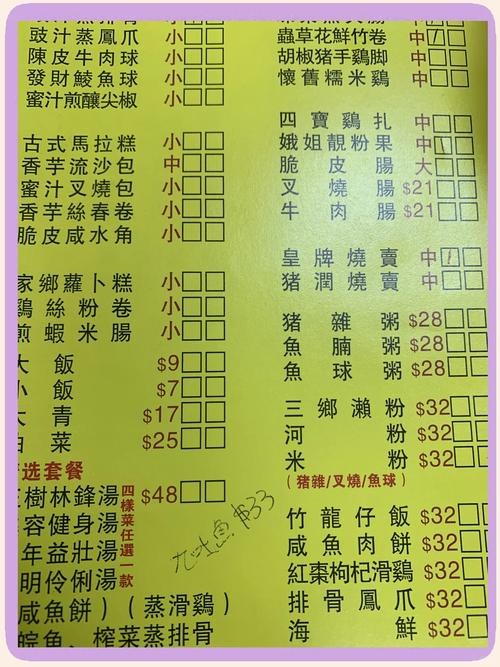 豉汁蒸鳳爪 小
陳皮牛肉球 小
發財鯪魚球 小
蜜汁煎釀尖椒 小
古式馬拉糕 小
香芋流沙包 中
蜜汁叉燒包 小
香芋絲春卷 小
脆皮咸水角 小
家鄉蘿卜糕 小
鷄絲粉卷 小
煎蝦米腸 小
大飯 $9
小飯 $7
大青 $17
白菜 $25
选套餐
樹林鋒湯 $48
容健身湯
年益壯湯
明伶俐湯
四樣菜任選一款
咸魚餅）（蒸滑鷄）
皖魚、榨菜蒸排骨
$33
蟲草花鮮竹卷 中
胡椒猪手鷄脚 中
懷舊糯米鷄 中
四寶鷄扎 中
娥姐靚粉果 中
脆皮腸 大
叉燒腸 $21
牛肉腸 $21
皇牌燒賣 中
猪潤燒賣 中
猪雜粥 $28
魚腩粥 $28
魚球粥 $28
三鄉瀨粉 $32
河粉 $32
米粉 $32
（猪雜/叉燒/魚球）
竹龍仔飯 $32
咸魚肉餅 $32
紅棗枸杞滑鷄 $32
排骨鳳爪 $32
海鮮 $32